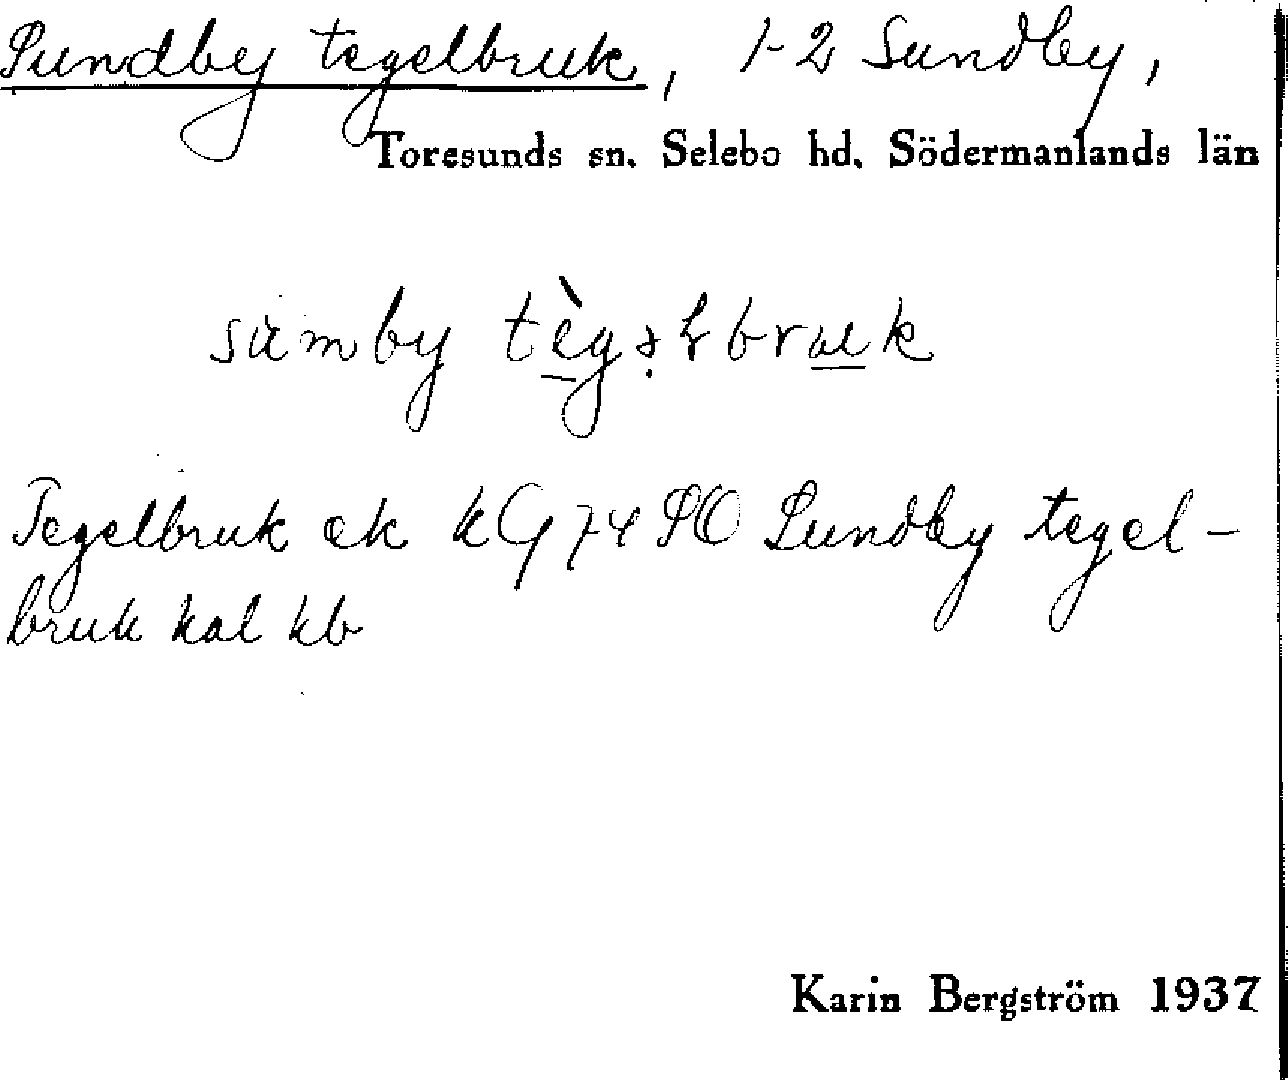 Sundby tegelbruk, 1-2 Sundby,
Toresunds sn. Selebo hd. Södermanlands län
sùmby
Tegelbruk ek kG 74 SO Sundby tegel-
bruk kal kb
Karin Bergström 1937